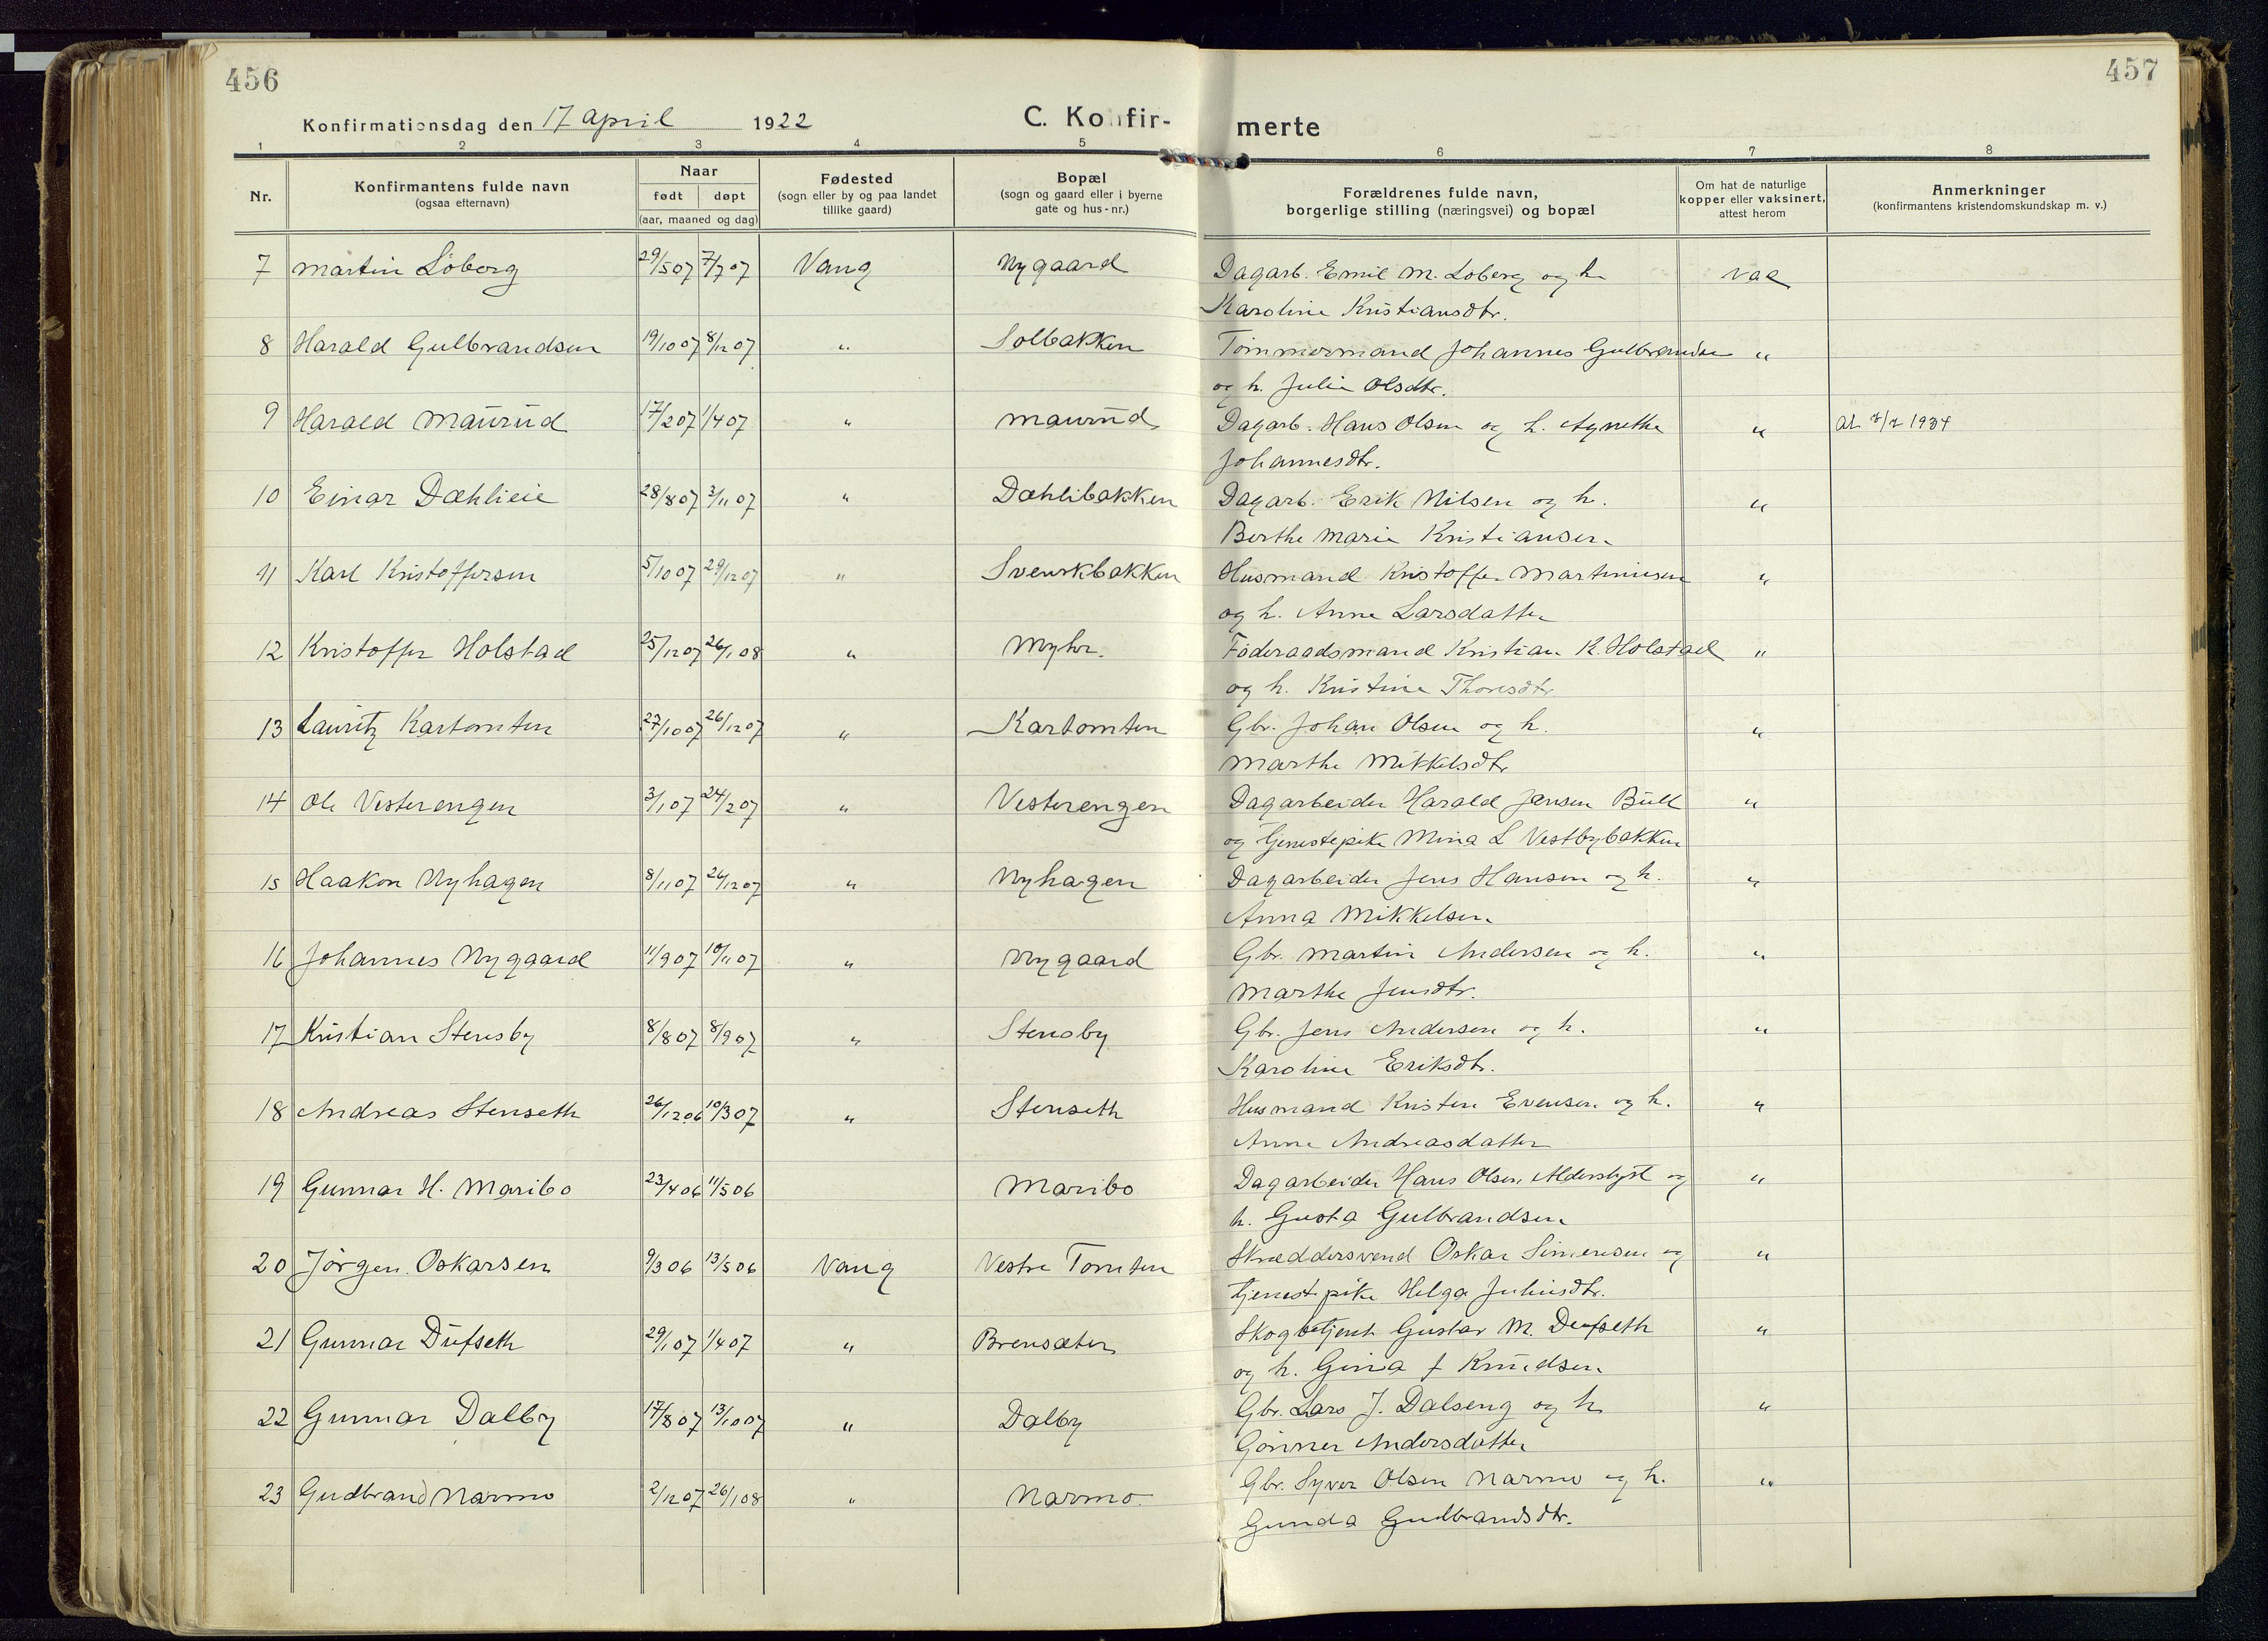 456
457
Konfirmationsdag den 17 april 1922
C. Konfir-
merte
1 2 3 4 5 6 7 8
Nr.
Konfirmantens fulde navn
(ogsaa efternavn)
Naar
født døpt
(aar, maaned og dag)
Fødested
(sogn eller by og paa landet
tillike gaard)
Bopæl
(sogn og gaard eller i byerne
gate og hus-nr.)
Forældrenes fulde navn,
borgerlige stilling (næringsvei) og bopæl
Om hat de naturlige
kopper eller vaksinert,
attest herom
Anmerkninger
(konfirmantens kristendomskundskap m. v.)
7 Martin Löberg 29/5 07 7/7 07 Vang Nygaard Dagarb. Emil M. Löberg og h. vac
Karoline Kristiansdtr.
8 Harald Gulbrandsen 19/10 07 8/12 07 " Solbakken Tömmermand Johannes Gulbrandsen "
og h. Julie Olsdtr.
9 Harald Maurud 17/2 07 1/4 07 " Maurud Dagarb. Hans Olsen og h. Agnethe " at. 7/2 1934
Johannesdtr.
10 Einar Dæhlieie 28/8 07 3/11 07 " Dæhlibakken Dagarb. Erik Nilsen og h. "
Berthe Marie Kristiansen
11 Karl Kristoffersen 5/10 07 29/12 07 " Svenskbakken Husmand Kristoffer Martinusen "
og h. Anne Larsdatter
12 Kristoffer Holstad 25/12 07 26/1 08 " Myhr. Föderaadsmand Kristian K. Holstad "
og h. Kristine Thoresdtr
13 Lauritz Kartomten 27/10 07 26/12 07 " Kartomten Gbr. Johan Olsen og h. "
Marthe Mikkelsdtr
14 Ole Vesterengen 3/1 07 24/2 07 " Vesterengen Dagarbeider Harald Jensen Bull "
og tjenestepike Mina L Vestbybakken
15 Haakon Nyhagen 8/11 07 26/12 07 " Nyhagen Dagarbeider Jens Hansen og h. "
Anna Mikkelsen
16 Johannes Nygaard 11/9 07 10/11 07 " Nygaard Gbr. Martin Andersen og h. "
Marthe Jensdtr.
17 Kristian Stensby 8/8 07 8/9 07 " Stensby Gbr. Jens Andersen og h. "
Karoline Eriksdtr.
18 Andreas Stenseth 26/12 06 10/3 07 " Stenseth Husmand Kristen Evensen og h. "
Anne Andreasdatter
19 Gunnar H. Maribo 23/4 06 11/5 06 Maribo Dagarbeider Hans Olsen Alderslyst og "
h. Gusta Gulbrandsen
20 Jörgen Oskarsen 9/3 06 13/5 06 Vang Vestre Tomten Skræddersvend Oskar Simensen og "
tjenestepike Helga Juliusdtr.
21 Gunnar Dufseth 29/1 07 1/4 07 " Brensæter Skogbetjent Gustav M. Dufseth "
og h. Gina f Knudsen
22 Gunnar Dalby 17/8 07 13/10 07 " Dalby Gbr. Lars J. Dalseng og h. "
Gönner Andersdatter
23 Gudbrand Narmo 2/12 07 26/1 08 " Narmo. Gbr. Syver Olsen Narmo og h. "
Gunda Gudbrandsdtr.